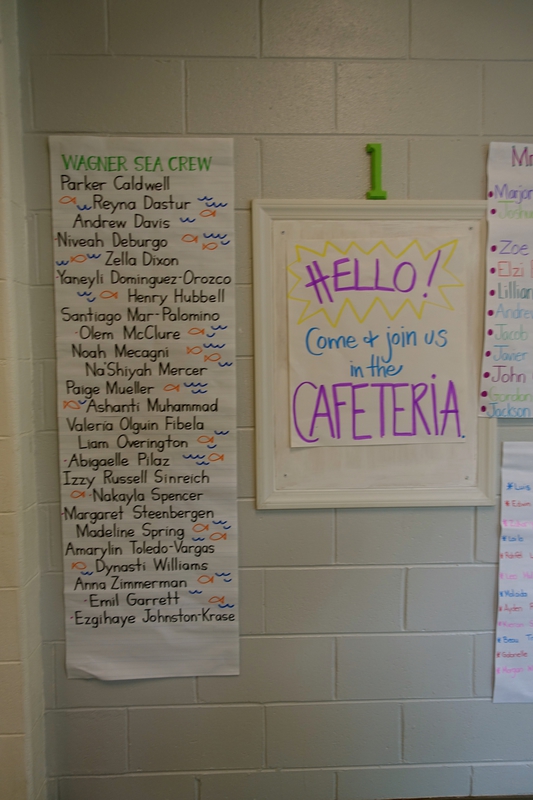 WAGNER SEA CREW
Parker Caldwell
Reyna Dastur
Andrew Davis
Niveah Deburgo
Zella Dixon
Yaneyli Dominguez-Orozco
Henry Hubbell
Santiago Mar-Palomino
Olem McClure
Noah Mecagni
Na'Shiyah Mercer
Paige Mueller
Ashanti Muhammad
Valeria Olguin Fibela
Liam Overington
Abigaelle Pilaz
Izzy Russell Sinreich
Nakayla Spencer
Margaret Steenbergen
Madeline Spring
Amarylin Toledo-Vargas
Dynasti Williams
Anna Zimmerman
Emil Garrett
Ezgihaye Johnston-Krase
1
HELLO!
Come + join us
in the
CAFETERIA.
Zoe
Elzi
Jacob
Javier
John
Jackson
Luis
Edwin
Gabrielle